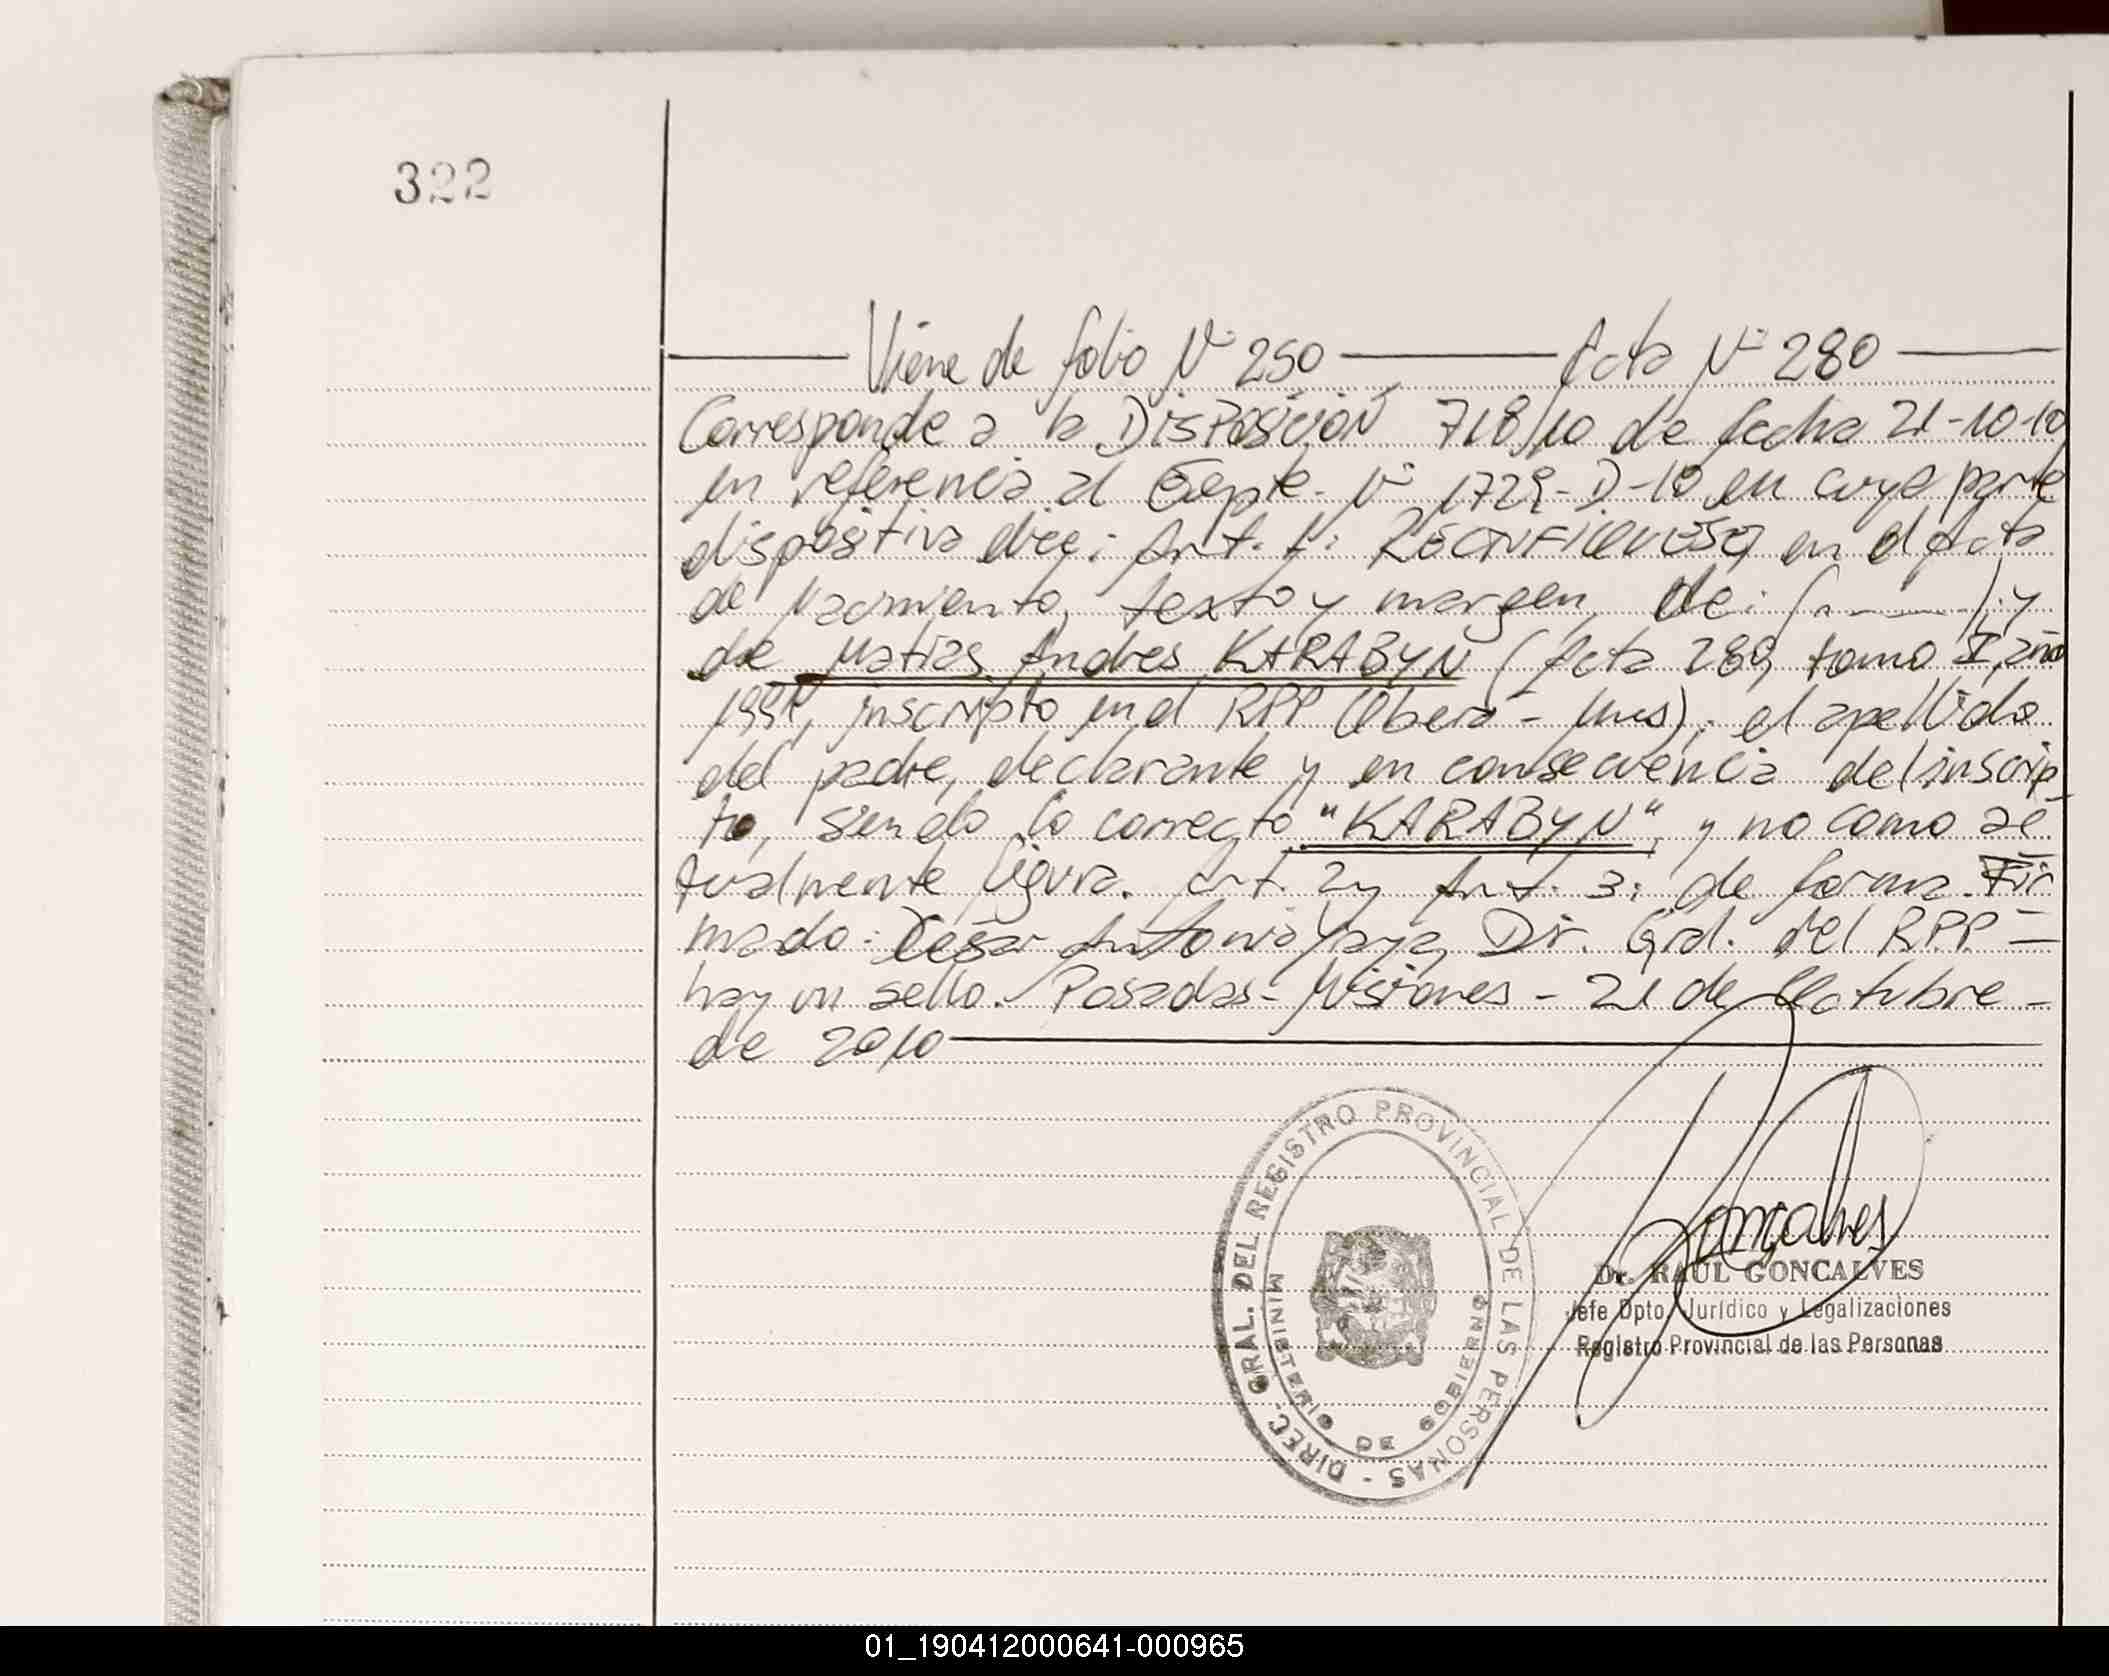 322
Viene de folio Nº 250 — Acta Nº 280
Corresponde a la DISPOSICIÓN 718/10 de fecha 21-10-10
en referencia al Expte. Nº 1729-D-10 en cuya parte
dispositiva dice: Art. 1: RECTIFIQUESE, en el Acta
de Nacimiento, texto y margen, de: (------); y
de Matias Andres KARABYN (Acta 280, tomo I, año
inscripto en el RPP (Obera - Mnes); el apellido
del padre, declarante y en consecuencia del inscrip
to, siendo lo correcto "KARABYN", y no como ac
tualmente figura. Art. 2 y Art. 3: de forma. Fir
mado: César Antonio Yaya, Dir. Gral. del RPP -
hay un sello. Posadas - Misiones - 21 de Octubre -
de 2010
DIREC. GRAL. DEL REGISTRO PROVINCIAL DE LAS PERSONAS -
MINISTERIO DE GOBIERNO
Goncalves
Dr. RAUL GONCALVES
Jefe Dpto. Jurídico y Legalizaciones
Registro Provincial de las Personas
01_190412000641-000965